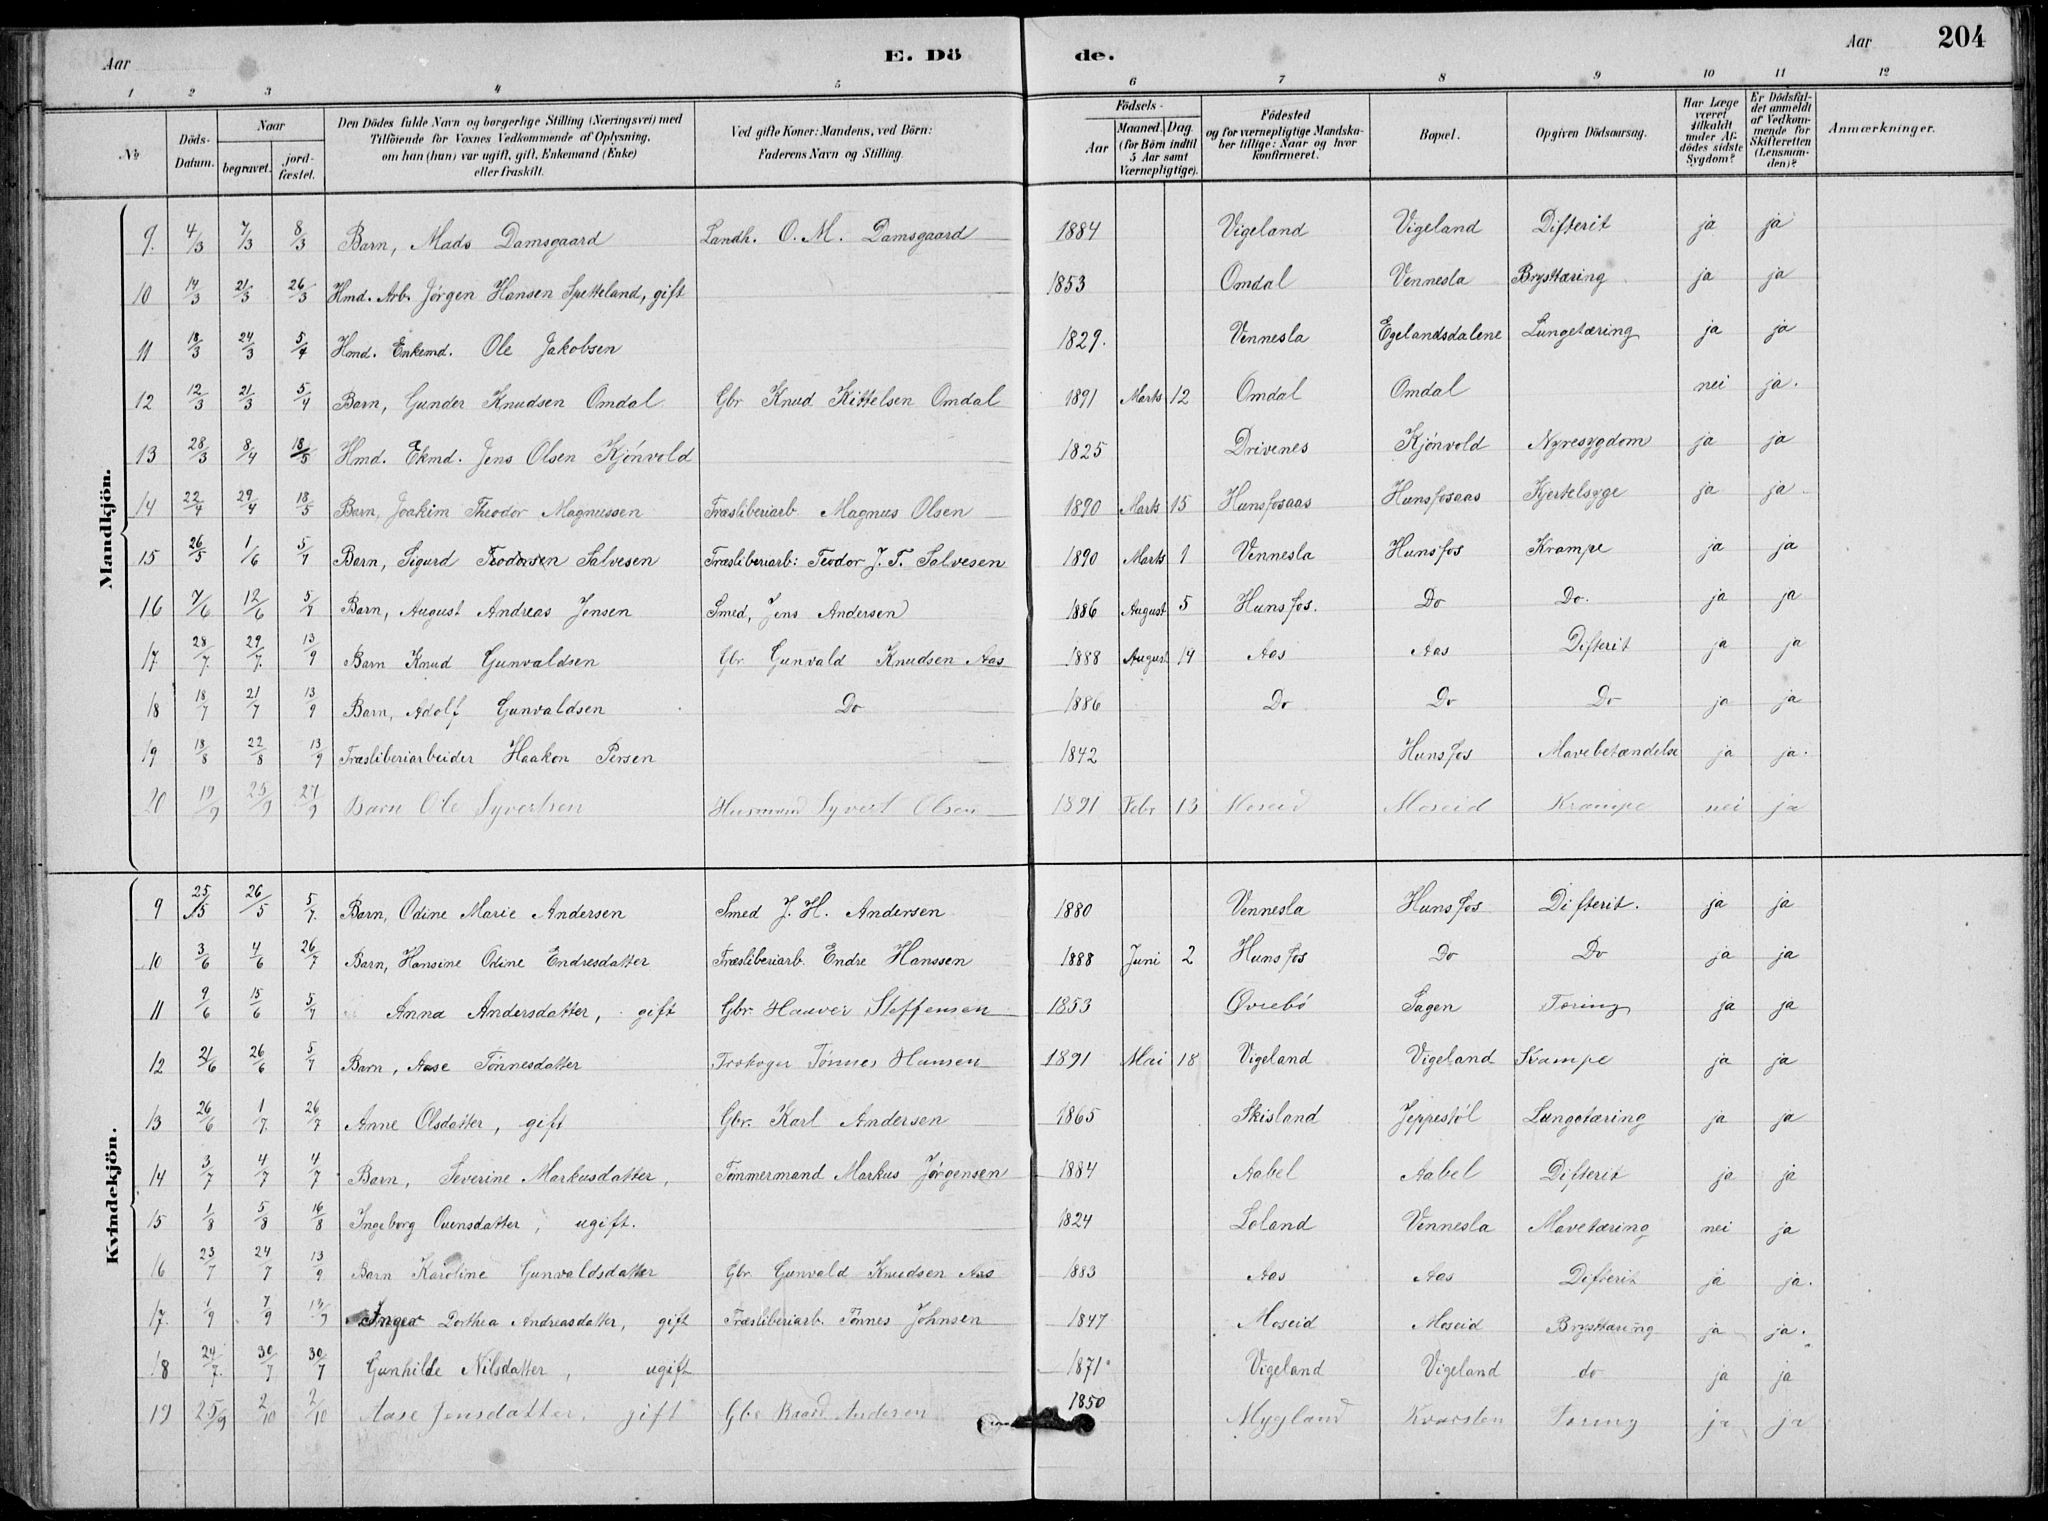 Aar E. Dö de. Aar 204
1 2 3 4 5 6 7 8 9 10 11 12
№ Döds-Datum. Naar begravet. jordfæstet. Den Dödes fulde Navn og borgerlige Stilling (Næringsvei) med Tilföiende for Voxnes Vedkommende af Oplysning, om han (hun) var ugift, gift, Enkemand (Enke) eller fraskilt. Ved gifte Koner: Mandens, ved Börn: Faderens Navn og Stilling. Födsels- Aar Maaned. Dag. (for Börn indtil 5 Aar samt Værnepligtige). Födested og for værnepligtige Mandskaber tillige: Naar og hvor konfirmeret. Bopæl. Opgiven Dödsaarsag. Har Læge været tilkaldt under Afdödes sidste Sygdom? Er Dödsfaldet anmeldt af Vedkommende for Skifteretten (Lensmanden)? Anmærkninger.
Mandkjön.
9. 4/3 7/3 8/3 Barn, Mads Damsgaard Landh. O. M. Damsgaard 1884 Vigeland Vigeland Difterit ja ja
10 14/3 21/3 26/3 Hmd. Arb. Jørgen Hansen Spetteland, gift 1853 Omdal Vennesla Brysttæring ja ja
11 18/3 24/3 5/4 Hmd. Enkemd. Ole Jakobsen 1829. Vennesla Egelandsdalene Lungetæring ja ja
12 12/3 21/3 5/4 Barn, Gunder Knudsen Omdal Gbr Knud Kittelsen Omdal 1891 Marts 12 Omdal Omdal nei ja.
13 28/3 8/4 18/5 Hmd. Ekmd. Jens Olsen Kjönvold 1825 Drivenes Kjönvold Nyresygdom ja ja
14 22/4 29/4 18/5 Barn, Joakim Theodor Magnussen Træsliberiarb Magnus Olsen 1890 Marts 15 Hunsfosaas Hunsfosaas Kjertelsyge ja ja
15 26/5 1/6 5/7 Barn, Sigurd Teodorsen Salvesen Træsliberiarb: Teodor J. T. Salvesen 1890 Marts 1 Vennesla Hunsfos Krampe ja ja
16 7/6 12/6 5/7 Barn, August Andreas Jensen Smed, Jens Andersen 1886 August 5 Hunsfos. Do Do. ja ja
17. 28/7 29/7 13/9 Barn Knud Gunvaldsen Gbr Gunvald Knudsen Aas 1888 August 14 Aas Aas Difterit ja ja
18 18/7 21/7 13/9 Barn, Adolf Gunvaldsen Do 1886 Do Do Do ja ja
19 18/8 22/8 13/9 Træsliberiarbeider Haakon Persen 1842 Hunsfos Mavebetændelse ja ja.
20 19/9 25/9 27/9 Barn Ole Syvertsen Husmand Syvert Olsen 1891 Febr 13 Moseid Moseid Krampe nei ja
Kvindekjön.
9 25/5 26/5 5/7. Barn, Odine Marie Andersen Smed J. H. Andersen 1880 Vennesla Hunsfos Difterit. ja ja
10 3/6 4/6 26/7 Barn, Hansine Odine Endresdatter Træsliberiarb. Endre Hanssen 1888 Juni 2 Hunsfos Do Do ja ja
11 9/6 15/6 5/7 Anna Andersdatter, gift Gbr. Haaver Steffensen 1853 Øvrebö Sagen Tæring ja ja
12 21/6 26/6 5/7 Barn, Aase Tönnesdatter Tönnes Hansen 1891 Mai 18 Vigeland Vigeland Krampe ja ja
13 26/6 1/7. 26/7 Anne Olsdatter, gift Gbr. Karl Andersen 1865 Skisland Jeppestöl Lungetæring ja ja
14 3/7 4/7 4/7 Barn, Severine Markusdatter, Tömmermand Markus Jørgensen 1884 Aabel Aabel Difterit ja ja
15 1/8 5/8 16/8 Ingeborg Ounsdatter, ugift. 1824 Loland Vennesla Mavetæring nei ja
16 23/7 24/7 13/9 Barn Karoline Gunvaldsdatter Gbr Gunvald Knudsen Aas 1883 Aas Aas Difterit ja ja.
17. 1/9 7/9 13/9 Inger Dorthea Andreasdatter, gift Træsliberiarb. Tönnes Johnsen 1847 Moseid Moseid Brysttæring ja ja.
18 24/7. 30/7 30/7 Gunhilde Nilsdatter, ugift 1871 Vigeland Vigeland do ja ja
19 25/9 2/10 2/10 Aase Jensdatter, gift Gbr Baard Andersen 1850 Mygland Kvarsten Tæring ja ja